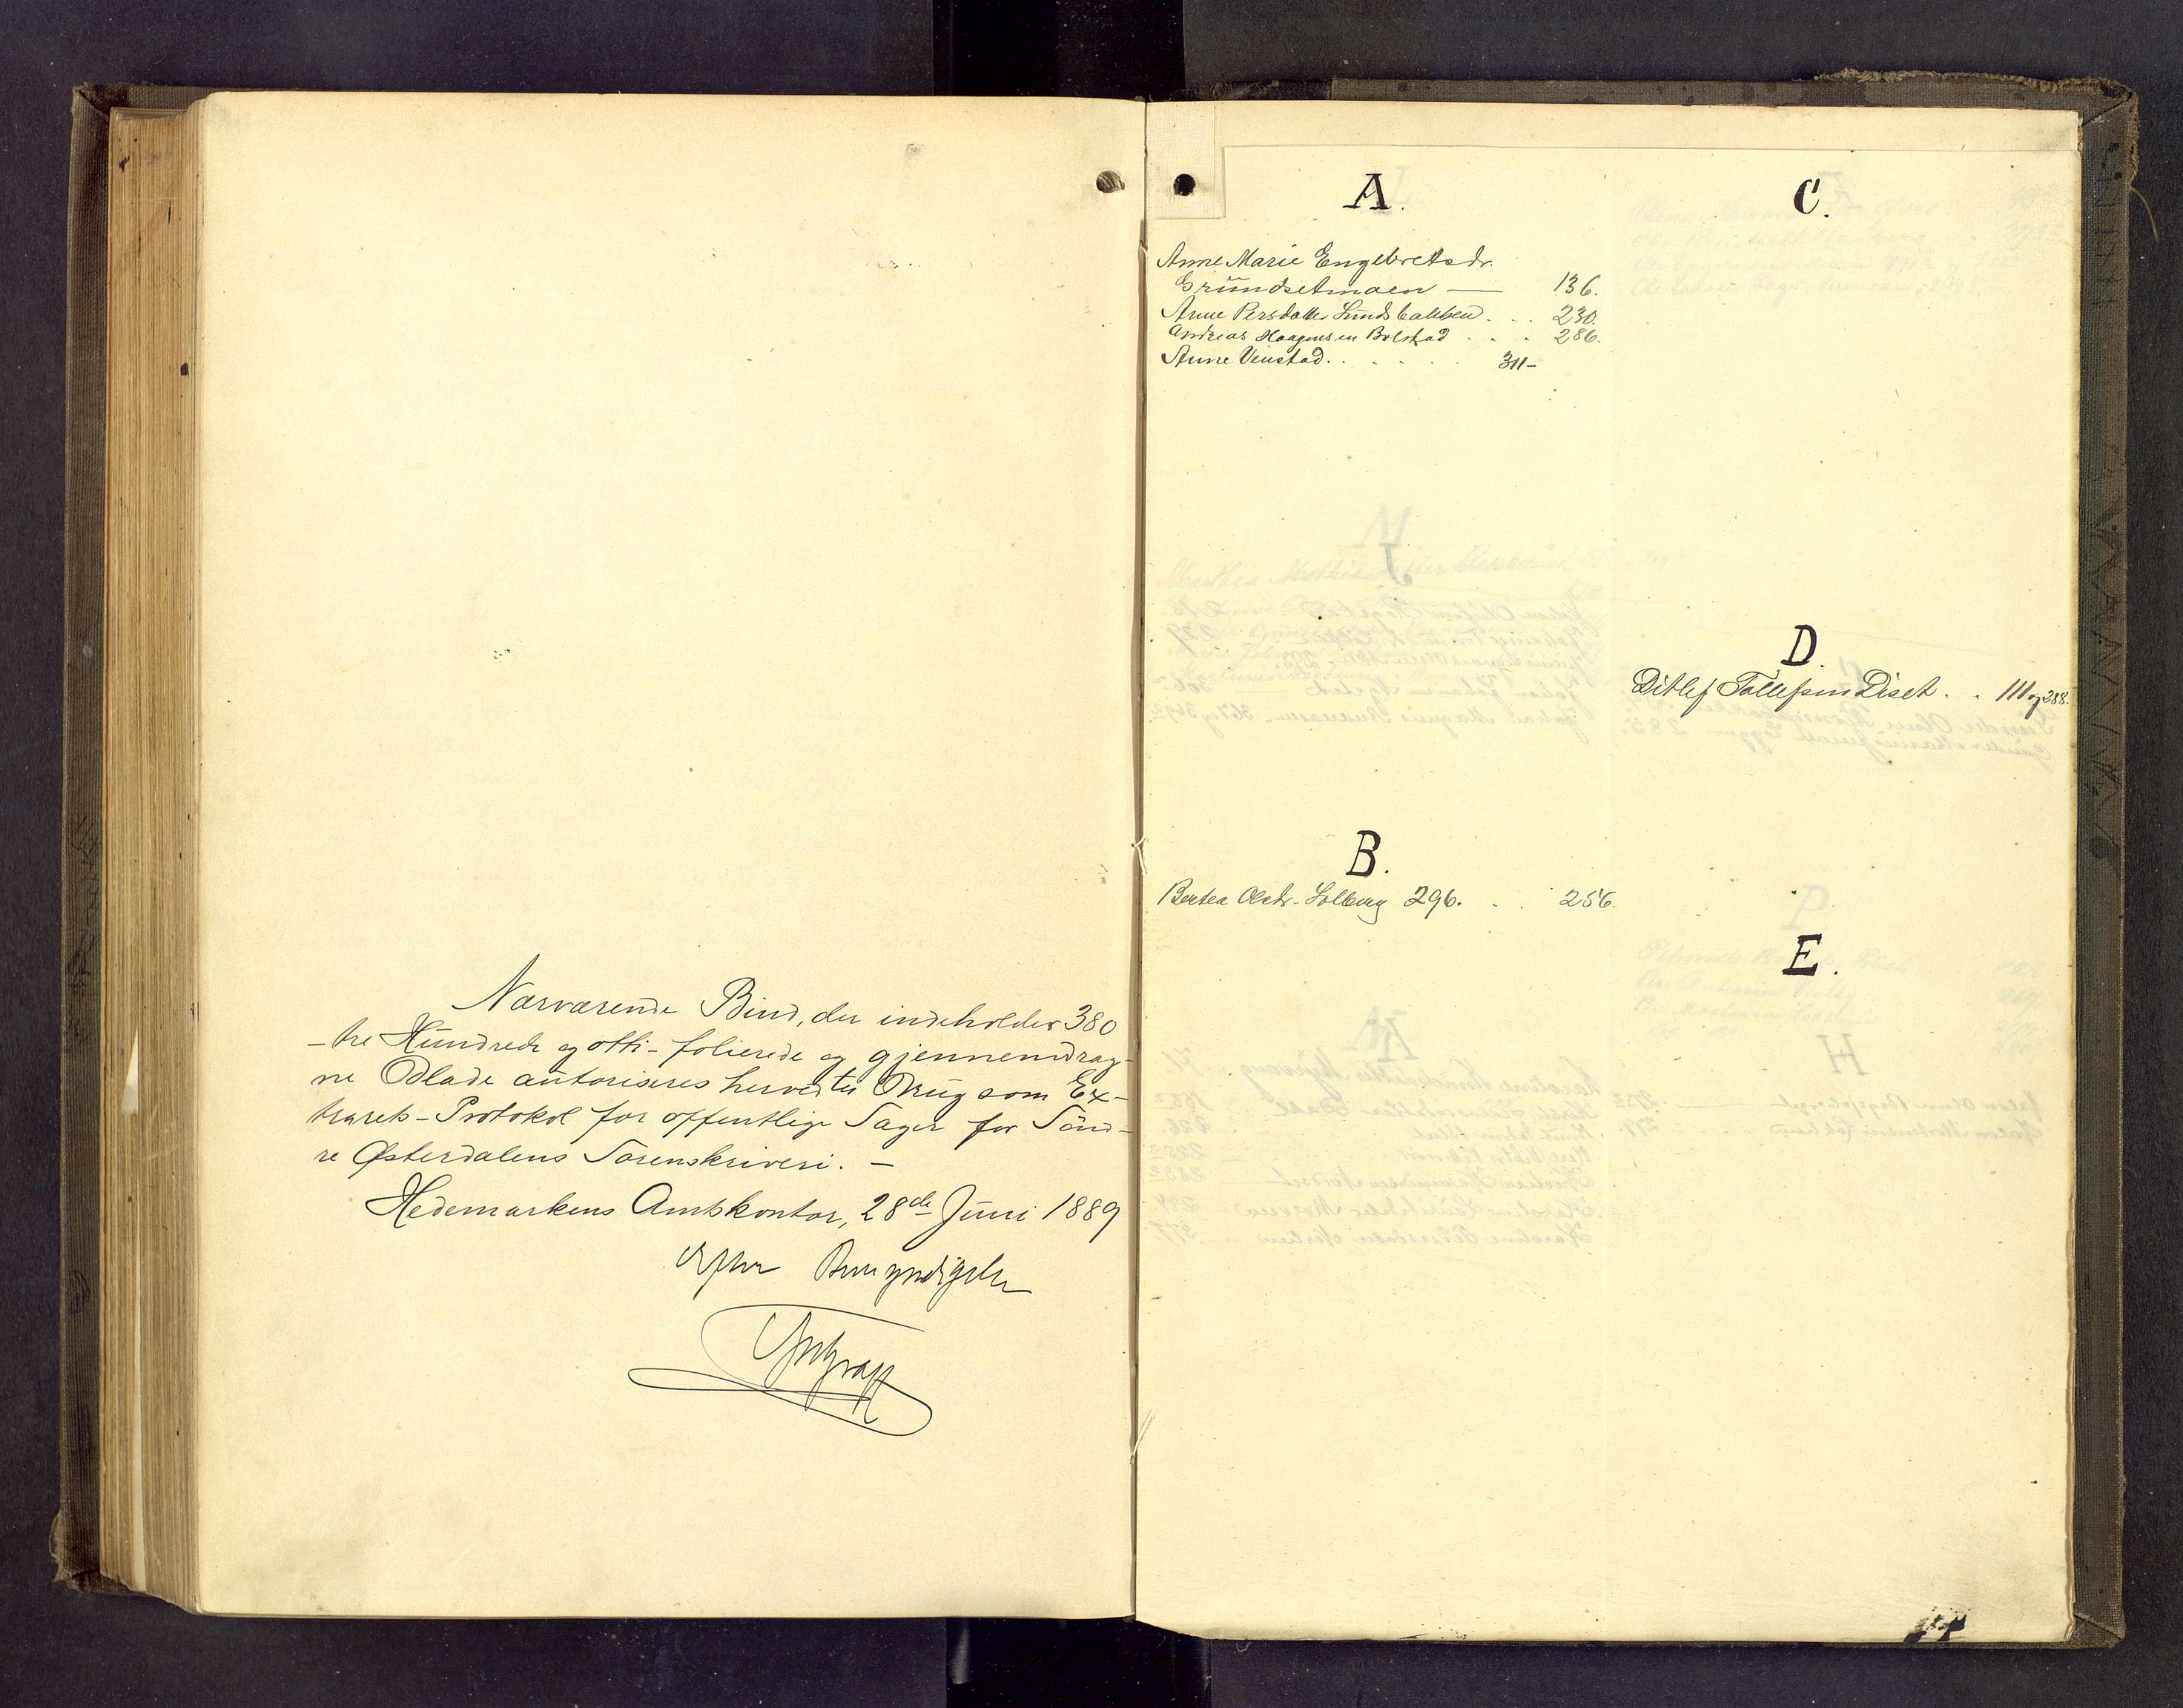 Nærværende Bind, der indeholder 380
- tre Hundrede og otti - folierede og gjennemdrag-
ne Blade autoriseres herved til Brug som Ex-
trarets-Protokol for offentlige Sager for Sönd-
re Østerdalens Sorenskriveri. -
Hedemarkens Amtskontor, 28de Juni 1889
Efter Bemyndigelse
A.
Anne Marie Engebretsdr.
Grundsetmoen — 136.
Anne Persdatter Lundsbakken . . . 230.
Andreas Haagensen Bolstad . . . 286.
Anne Venstad. . . . . . 311-
B.
Bertea Olsdr. Solberg 296. . . 256.
C.
D.
Ditlef Tollefsen Diset . . 111 og 288.
E.